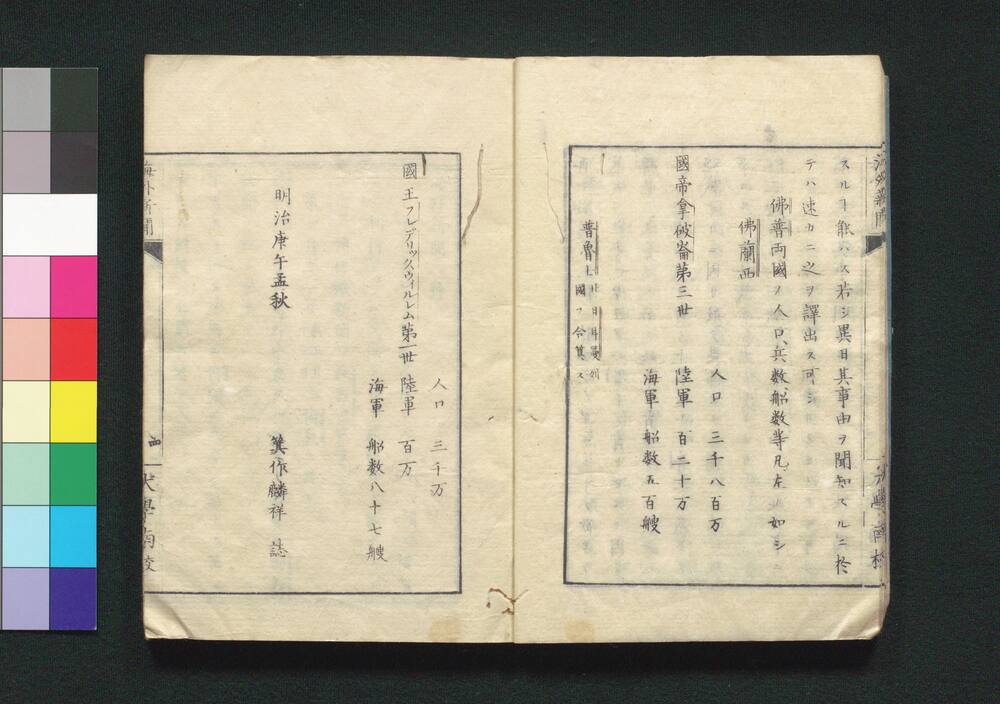 スルヿ能ハス若シ異日其事由ヲ聞知スルニ於
テハ速カニ之ヲ譯出ス可シ
佛普両國ノ人口兵数船数等凡左ノ如シ
佛蘭西
人口 三千八百万
國帝拿破崙第三世 陸軍 百二十万
海軍 船数五百艘
普魯士 北日耳曼列國ヲ合算ス
人口 三千万
國王フレデリックウィルレム第一世 陸軍 百万
海軍 船数八十七艘
明治庚午孟秋
箕作麟祥 誌
海外新聞
四
大學南校